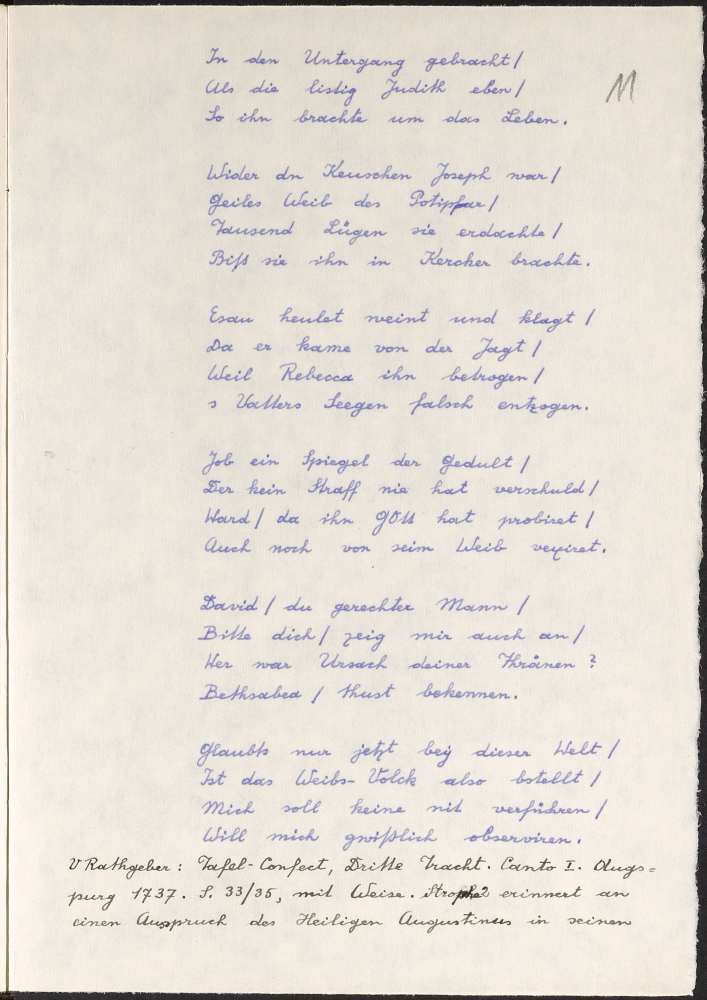 In den Untergang gebracht/
Als die listig Judith eben/
So ihn brachte um das Leben.
11
Wider dn Keuschen Joseph war/
Geiles Weib des Potiphar/
Tausend Lügen sie erdachte/
Biß sie ihn in Kercker brachte.
Esau heulet weint und klagt/
Da er kame von der Jagt/
Weil Rebecca ihn betrogen/
s Vatters Seegen falsch entzogen.
Job ein Spiegel der Gedult/
Der kein Straff nie hat verschuld/
Ward/ da ihn GOtt hat probiret/
Auch noch von seim Weib vexiret.
David/ du gerechter Mann/
Bitte dich/ zeig mir auch an/
Wer war Ursach deiner Thränen?
Bethsabea/ thust bekennen.
Glaubts nur jetzt bey dieser Welt/
Ist das Weibs-Volck also bstellt/
Mich soll keine nit verführen/
Will mich gwißlich observiren.
V Rathgeber: Tafel-Confect, Dritte Tracht. Canto I. Augs=
purg 1737. S. 33/35, mit Weise. Strophe 2 erinnert an
einen Auspruch des Heiligen Augustinus in seinen